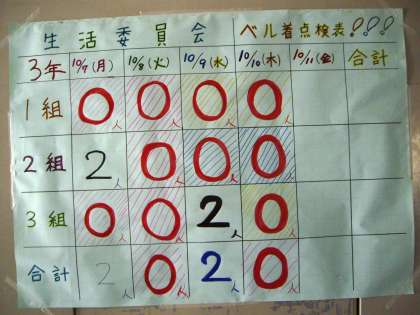 生活委員会 ベル着点検表!!!
3年 10/7(月) 10/8(火) 10/9(水) 10/10(木) 10/11(金) 合計
1組 0人 0人 0人 0人
2組 2人 0人 0人 0人
3組 0人 0人 2人 0人
合計 2人 0人 2人 0人